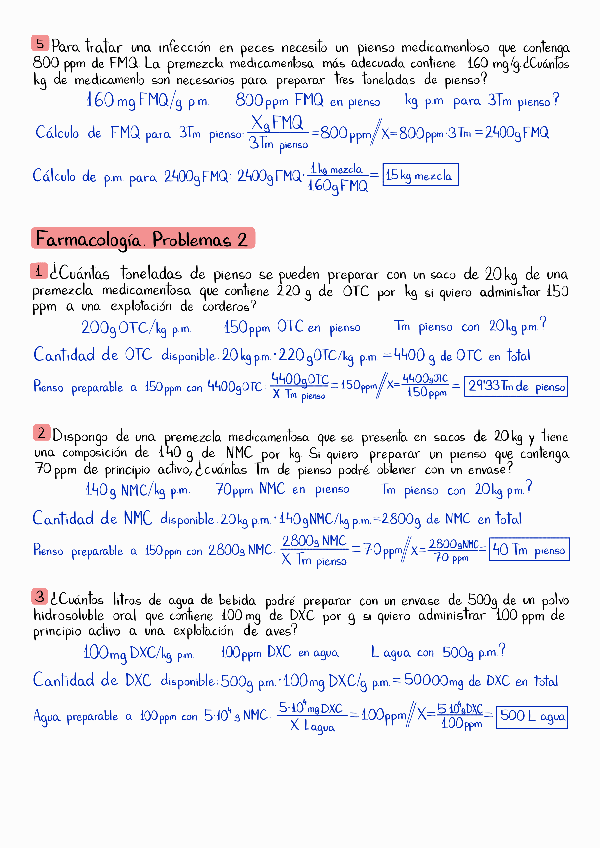 5 Para tratar una infección en peces necesito un pienso medicamentoso que contenga
800 ppm de FMQ. La premezcla medicamentosa más adecuada contiene 160 mg/g. ¿Cuántos
kg de medicamento son necesarios para preparar tres toneladas de pienso?
160 mg FMQ/g p.m. 800ppm FMQ en pienso kg p.m para 3Tm pienso?
Cálculo de FMQ para 3Tm pienso: X g FMQ / 3Tm pienso = 800 ppm // X = 800ppm · 3Tm = 2400g FMQ
Cálculo de p.m para 2400g FMQ: 2400g FMQ · 1 kg mezcla / 160g FMQ = 15 kg mezcla
Farmacología. Problemas 2
1 ¿Cuántas toneladas de pienso se pueden preparar con un saco de 20 kg de una
premezcla medicamentosa que contiene 220 g de OTC por kg si quiero administrar 150
ppm a una explotación de corderos?
200g OTC/kg p.m. 150ppm OTC en pienso Tm pienso con 20kg p.m?
Cantidad de OTC disponible: 20 kg p.m. · 220 g OTC/kg p.m = 4400 g de OTC en total
Pienso preparable a 150ppm con 4400g OTC: 4400g OTC / X Tm pienso = 150ppm // X = 4400g OTC / 150ppm = 29'33 Tm de pienso
2 Dispongo de una premezcla medicamentosa que se presenta en sacos de 20 kg y tiene
una composición de 140 g de NMC por kg. Si quiero preparar un pienso que contenga
70 ppm de principio activo, ¿cuántas Tm de pienso podré obtener con un envase?
140g NMC/kg p.m. 70ppm NMC en pienso Tm pienso con 20kg p.m.?
Cantidad de NMC disponible: 20kg p.m. · 140g NMC/kg p.m. = 2800g de NMC en total
Pienso preparable a 150ppm con 2800g NMC: 2800g NMC / X Tm pienso = 70ppm // X = 2800g NMC / 70 ppm = 40 Tm pienso
3 ¿Cuántos litros de agua de bebida podré preparar con un envase de 500g de un polvo
hidrosoluble oral que contiene 100 mg de DXC por g si quiero administrar 100 ppm de
principio activo a una explotación de aves?
100mg DXC/kg p.m. 100ppm DXC en agua L agua con 500g p.m?
Cantidad de DXC disponible: 500g p.m. · 100mg DXC/g p.m. = 50000mg de DXC en total
Agua preparable a 100ppm con 5·10⁴ g NMC: 5·10⁴ mg DXC / X L agua = 100ppm // X = 5·10⁴g DXC / 100ppm = 500 L agua